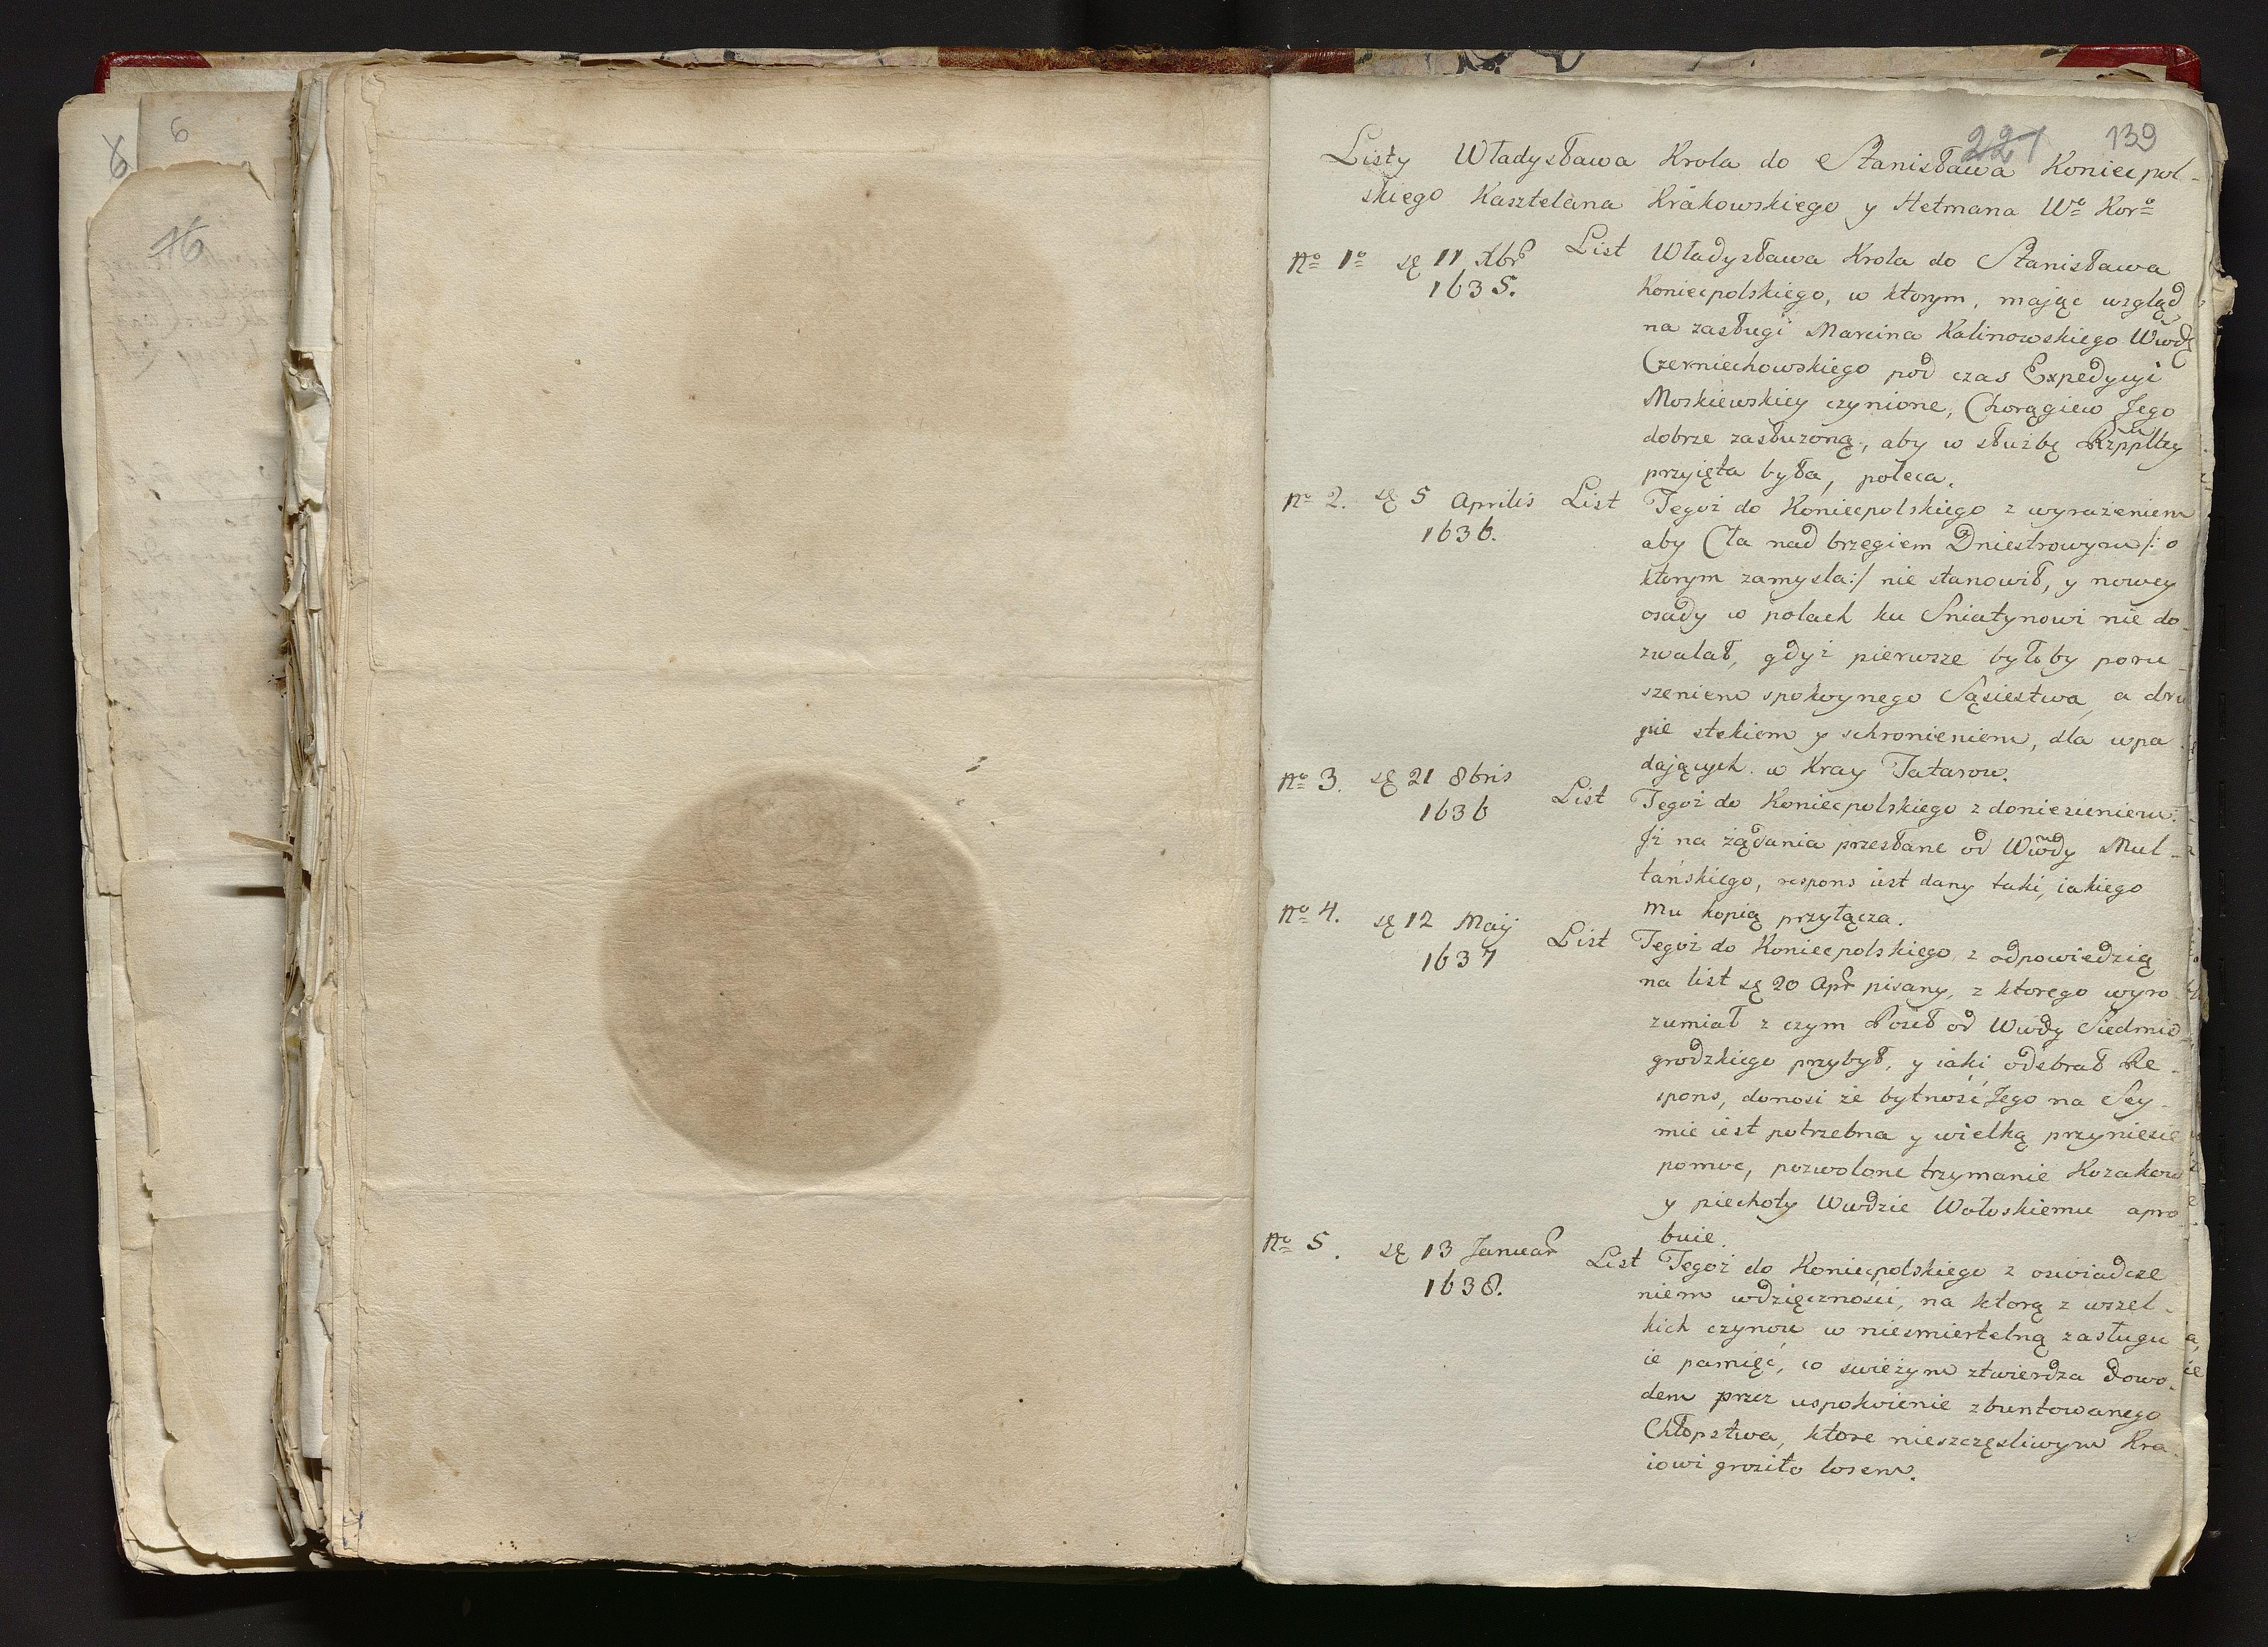 8
6
16
221
139
Listy Władysława Krola do Stanisława Koniecpol-
skiego Kasztelana Krakowskiego y Hetmana Wo Koro
No 1o sę 11 Xbr List Władysława Krola do Stanisława
1635. Koniecpolskiego, w ktorym, mając wzgląd
na zasługi Marcina Kalinowskiego Wwdę
Czerniechowskiego pod czas Expedycyi
Moskiewskiey czynione, Chorągiew Jego
dobrze zasłuzoną, aby w słuzbę Rzppltey
przyięta była, poleca.
No 2. sę 5 Aprilis List Tegoż do Koniecpolskiego z wyrażeniem
1636. aby Cła nad brzegiem Dniestrowym /: o
ktorym zamysla :/ nie stanowił, y nowey
osady w polach ku Sniatynowi nie do-
zwalał, gdyż pierwsze byłoby poru-
szeniem spokoynego Sąsiestwa, a dru
gie stekiem y schronieniem, dla wpa
dających w Kray Tatarow.
No 3. sę 21 8bris List Tegoż do Koniecpolskiego z doniesieniem:
1636 Jż na żądania przesłane od Wwdy Mul-
tańskiego, respons iest dany taki, iakiego
mu kopią przyłącza.
No 4. sę 12 Maij List Tegoż do Koniecpolskiego z odpowiedzią
1637 na list sę 20 Apr pisany, z ktorego wyro
zumiał z czym Poseł od Wwdy Siedmio
grodzkiego przybył, y iaki odebrał Re-
spons, donosi że bytność Jego na Sey-
mie iest potrzebna y wielką przyniesie
pomoc, pozwolone trzymanie Kozakow
y piechoty Wwdzie Wołoskiemu apro
buie.
No 5. sę 13 Januar List Tegoż do Koniecpolskiego z oswiadcze
1638. niem wdzięczności, na ktorą z wszel-
kich czynow w niesmiertelną zasługu
ie pamięć, co swieżym ztwierdza dowo-
dem przez uspokoienie zbuntowanego
Chłopstwa, ktore nieszczęsliwym Kra
iowi groziło losem.